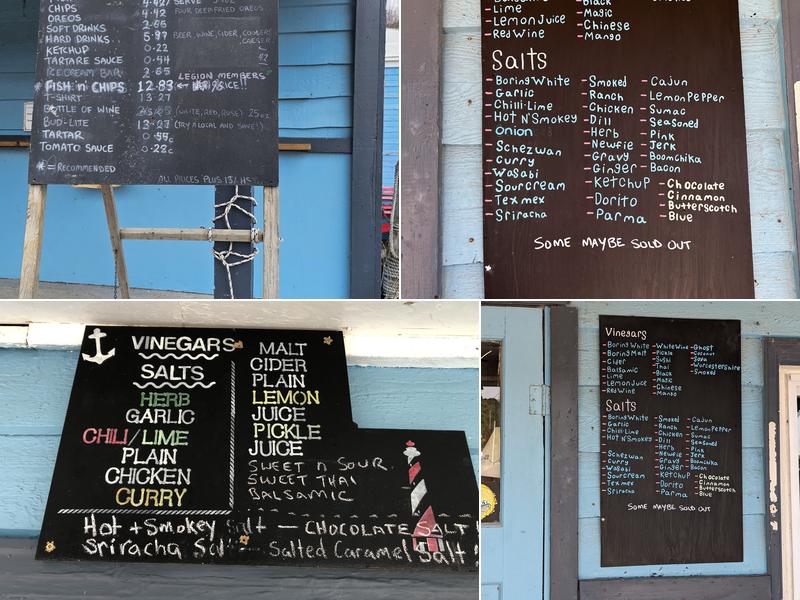 CHIPS 4.42
OREOS 4.42 FOUR DEEP FRIED OREOS
SOFT DRINKS 2.65
HARD DRINKS 5.97 BEER, WINE, CIDER, COOLERS
CAESER
KETCHUP 0.22
TARTARE SAUCE 0.44
ICE CREAM BAR 2.65 LEGION MEMBERS
*FISH 'n' CHIPS 12.83 ← PRICE!!
T-SHIRT 13.27
BOTTLE OF WINE (WHITE, RED, ROSE) 25oz
BUD-LITE 13.27 (TRY A LOCAL AND SAVE!)
TARTAR 0.44c
TOMATO SAUCE 0.28c
*=RECOMMENDED
ALL PRICES PLUS 13% HST
Lime - Black
- Lemon Juice - Magic
- Red Wine - Chinese
- Mango
Salts
- Boring White - Smoked - Cajun
- Garlic - Ranch - Lemon Pepper
- Chili-Lime - Chicken - Sumac
- Hot N' Smokey - Dill - Seasoned
- Onion - Herb - Pink
- Schezwan - Newfie - Jerk
- Curry - Gravy - Boomchika
- Wasabi - Ginger - Bacon
- Sour cream - Ketchup - Chocolate
- Tex mex - Dorito - Cinnamon
- Sriracha - Parma - Butterscotch
- Blue
SOME MAYBE SOLD OUT
VINEGARS
SALTS
HERB
GARLIC
CHILI/LIME
PLAIN
CHICKEN
CURRY
MALT
CIDER
PLAIN
LEMON
JUICE
PICKLE
JUICE
SWEET n SOUR
SWEET THAI
BALSAMIC
Hot + Smokey Salt — CHOCOLATE SALT
Sriracha Salt — Salted Caramel Salt!
Vinegars
- Boring White - White Wine - Ghost
- Boring Malt - Pickle - Coconut
- Cider - Sushi - Soya
- Balsamic - Thai - Worcestershire
- Lime - Black - Smoked
- Lemon Juice - Magic
- Red Wine - Chinese
- Mango
Salts
- Boring White - Smoked - Cajun
- Garlic - Ranch - Lemon Pepper
- Chili-Lime - Chicken - Sumac
- Hot N' Smokey - Dill - Seasoned
- Herb - Pink
- Schezwan - Newfie - Jerk
- Curry - Gravy - Boomchika
- Wasabi - Ginger - Bacon
- Sour cream - Ketchup - Chocolate
- Tex mex - Dorito - Cinnamon
- Sriracha - Parma - Butterscotch
- Blue
SOME MAYBE SOLD OUT